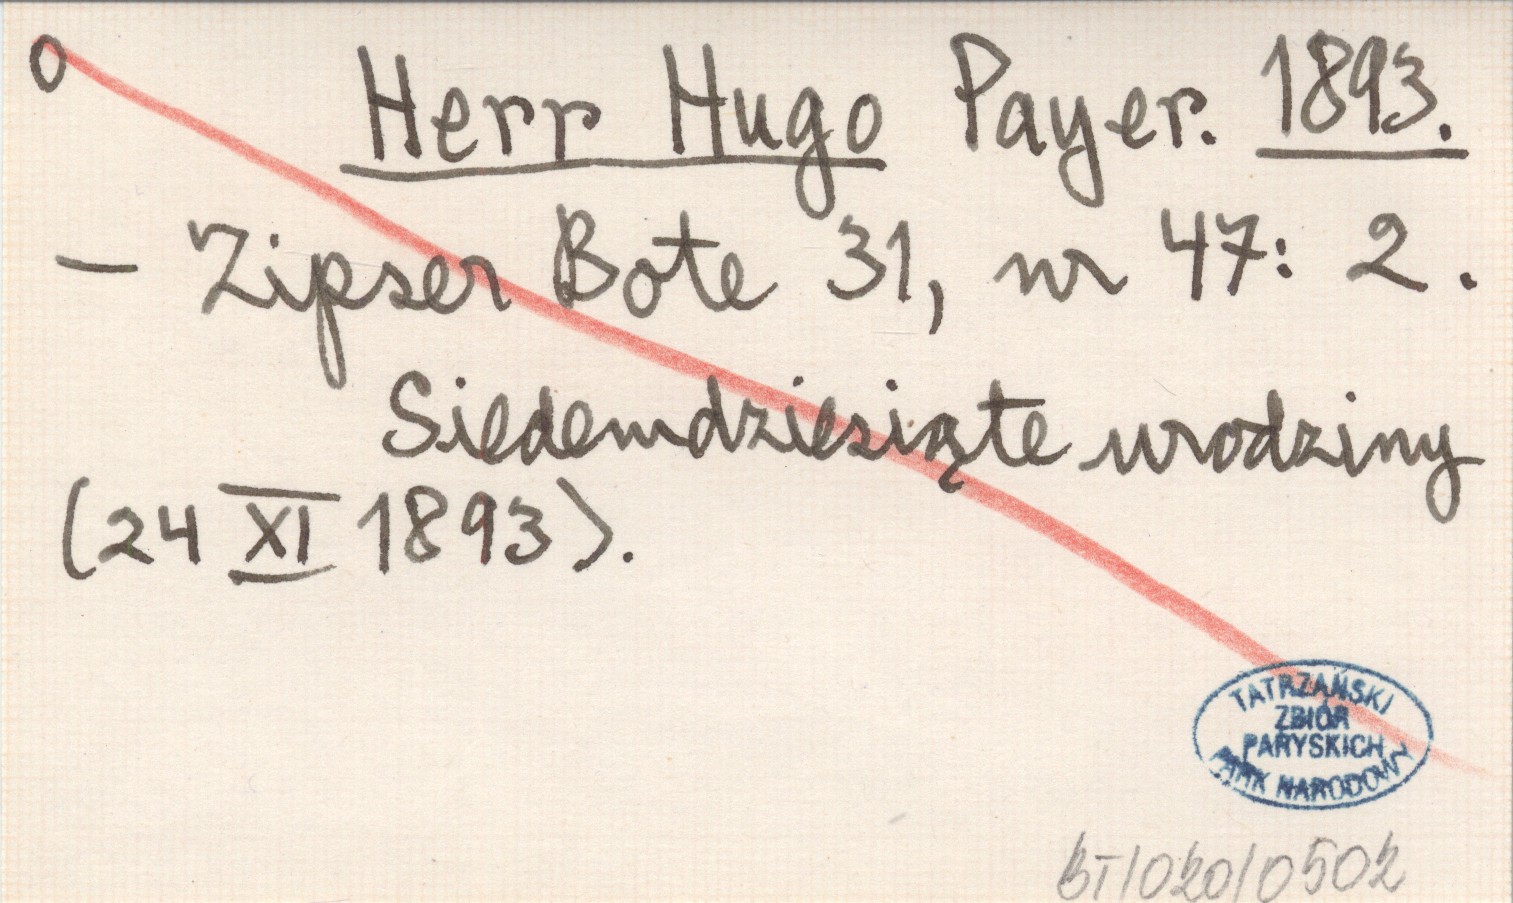 0 Herr Hugo Payer. 1893.
— Zipser Bote 31, nr 47: 2.
Siedemdziesiąte urodziny
(24 XI 1893).
TATRZAŃSKI
ZBIÓR
PARYSKICH
PARK NARODOWY
BT/020/0502